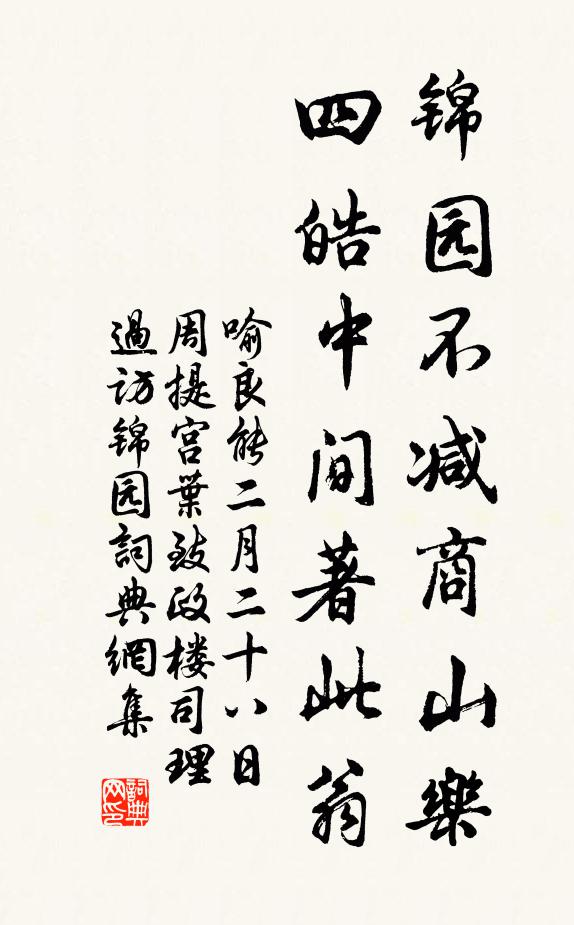 锦园不减商山樂
四皓中间著此翁
喻良能二月二十八日
周提宫葉致政楼司理
過访锦园詞典網集
詞典网印